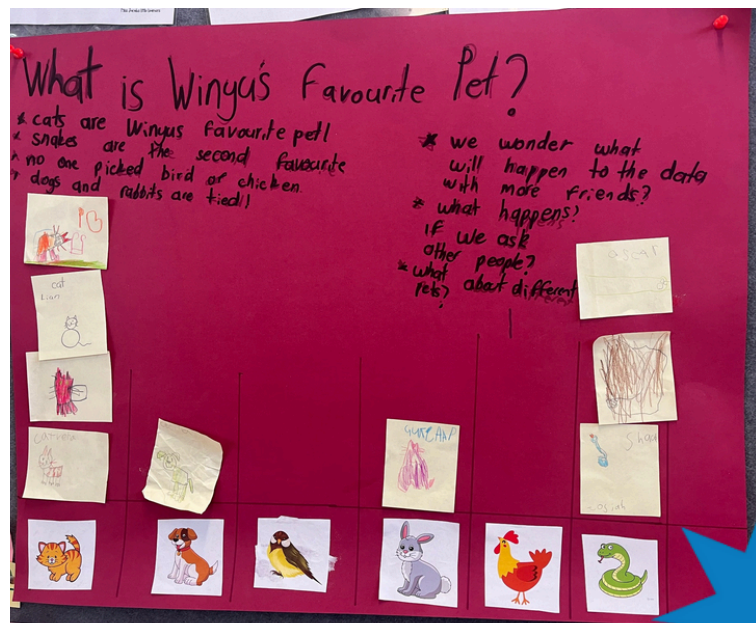 What is Winyu's Favourite Pet?
* cats are Winyus favourite pet!
* snakes are the second favourite
* no one picked bird or chicken.
* dogs and rabbits are tied!!
* we wonder what
will happen to the data
with more friends?
* what happens?
IF we ask
other people?
* what about different
pets?
cat
Liam